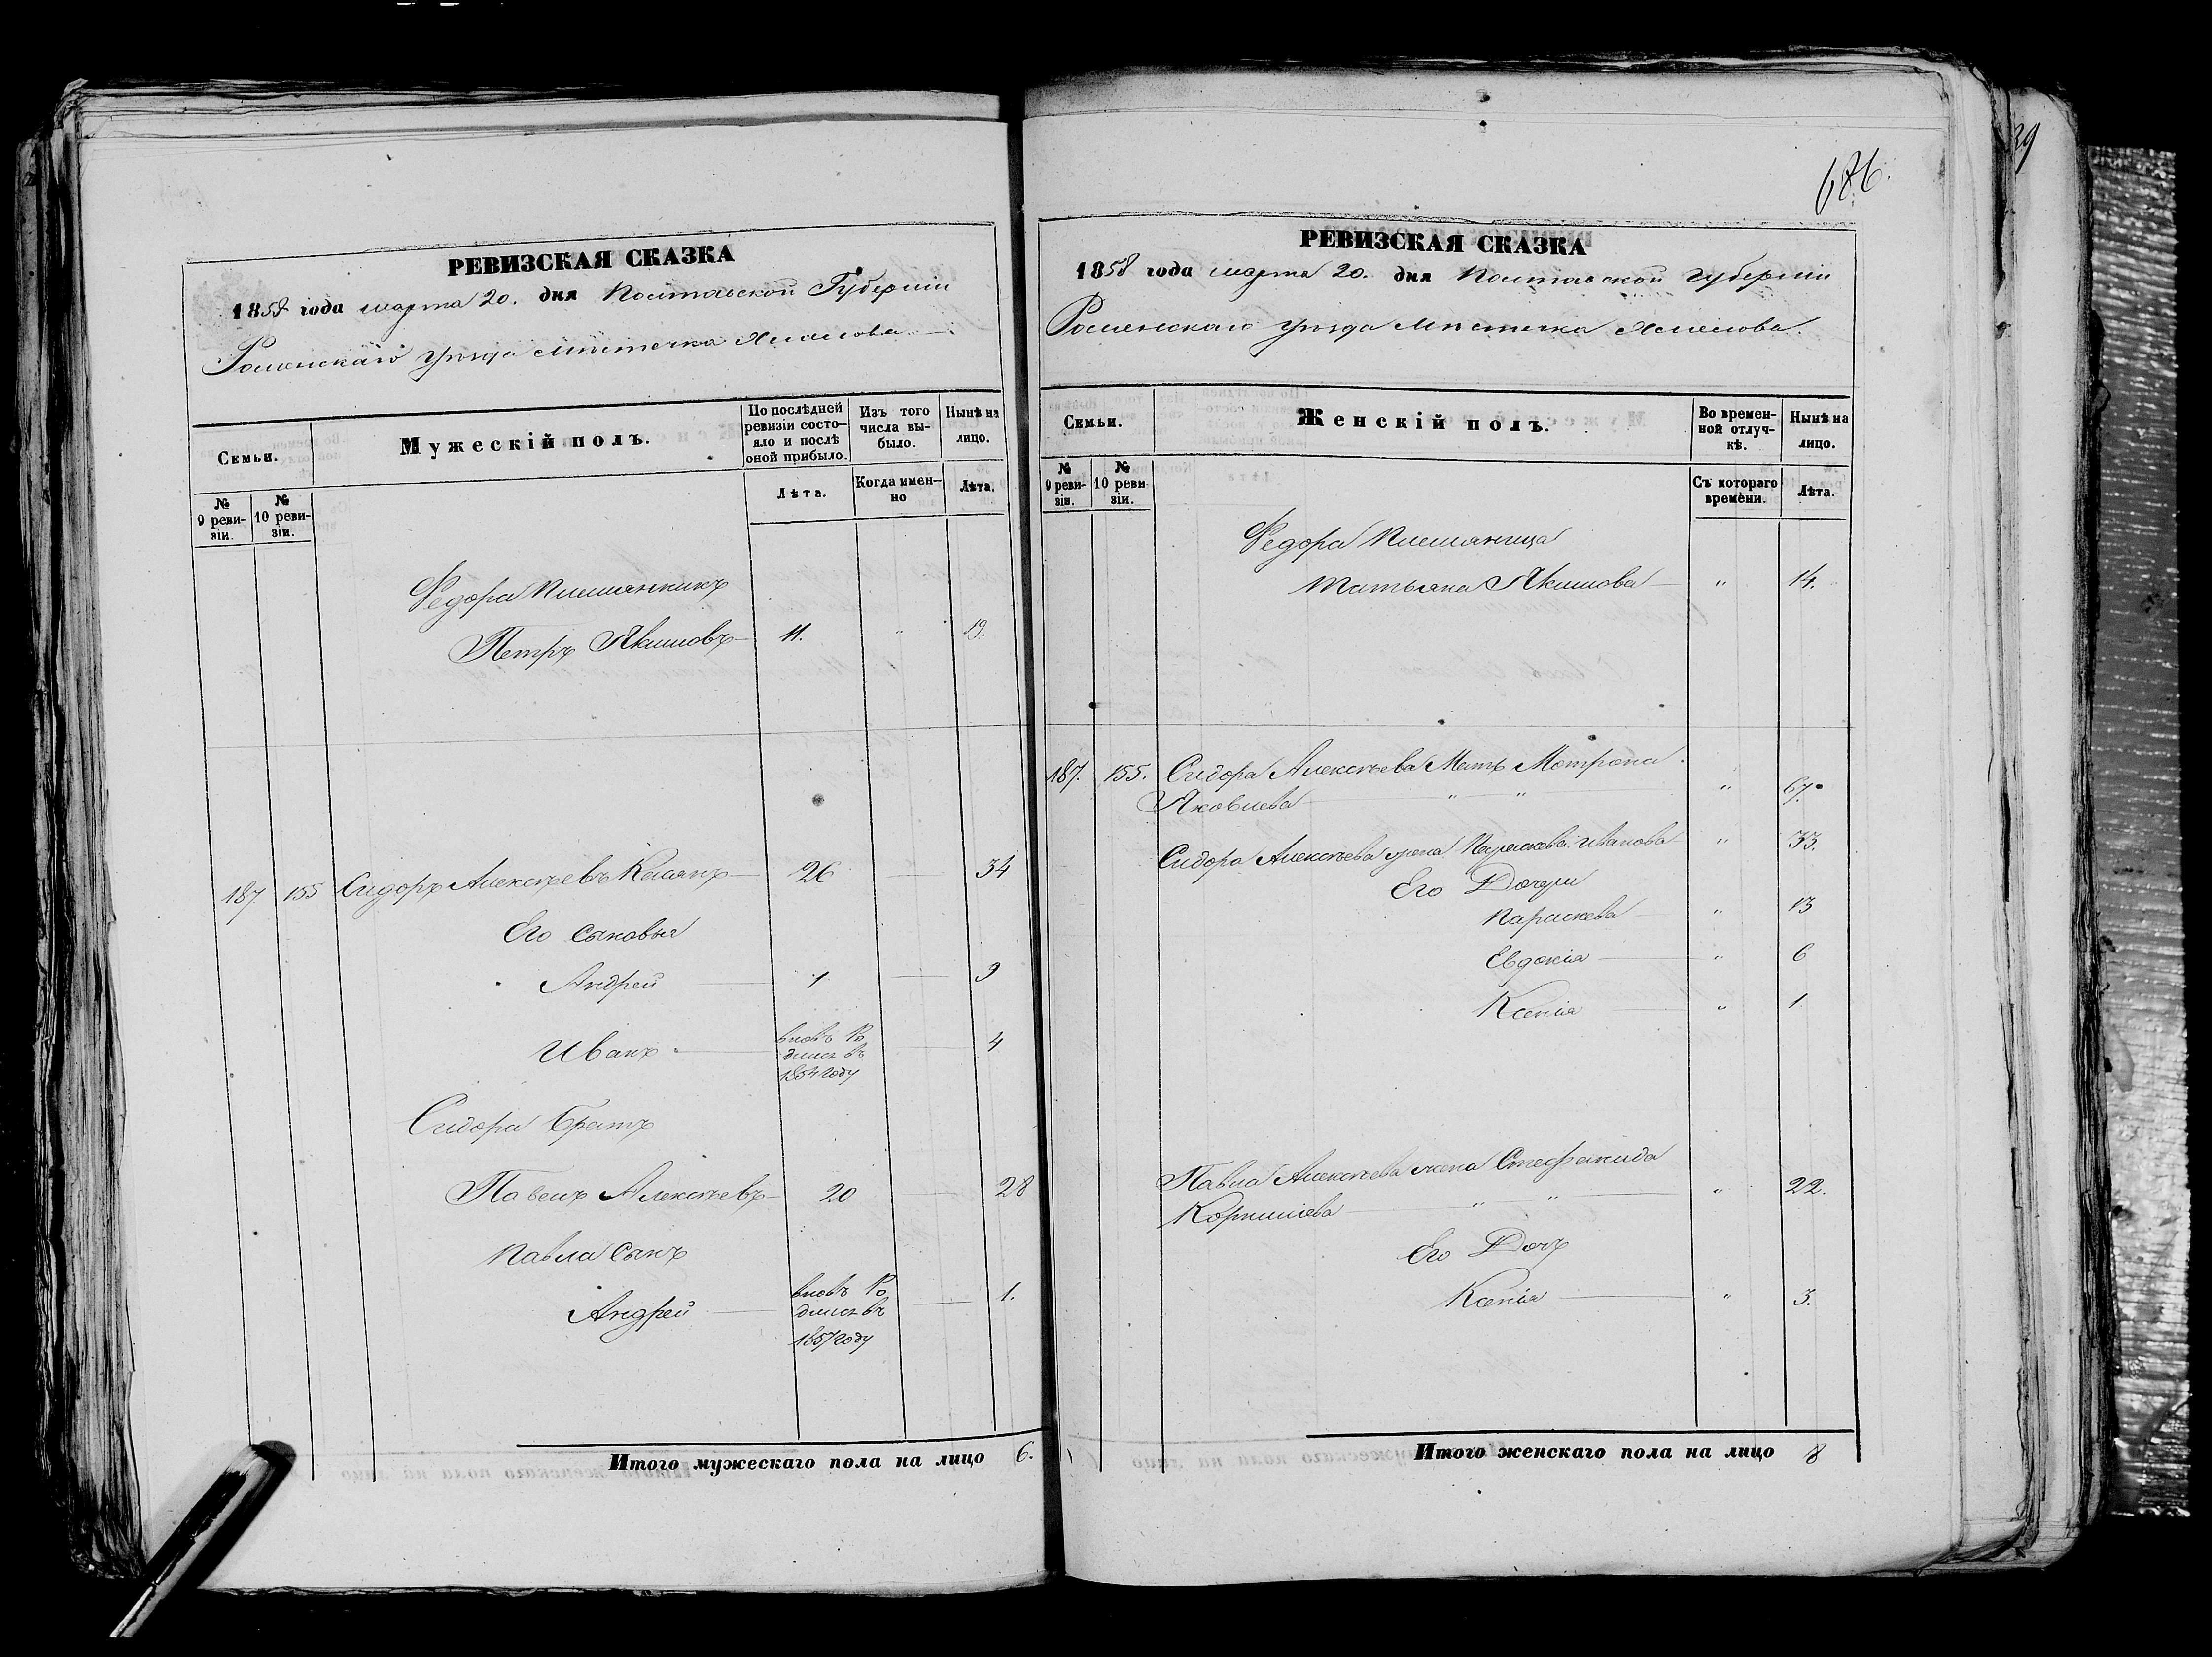 РЕВИЗСКАЯ СКАЗКА
1858 года марта 20. дня Полтавской Губерніи
Роменскаго уѣзда мѣстечка Смелова
Семьи.
Мужескій полъ.
По послѣдней ревизіи состояло и послѣ оной прибыло.
Изъ того числа выбыло.
Нынѣ на лицо.
№ 9 ревизіи.
№ 10 ревизіи.
Лѣта.
Когда именно
Лѣта.
Федора племянникъ
Петръ Якимовъ 11. " 19.
187. 155 Сидоръ Алексѣевъ Касянъ 26 34
Его сыновья
Андрей 1 9
Иванъ вновь Родился въ 1854 году 4
Сидора братъ
Павелъ Алексѣевъ 20 28
Павла сынъ
Андрей вновь Родился въ 1857 году 1.
Итого мужескаго пола на лицо 6.
39
РЕВИЗСКАЯ СКАЗКА
1858 года марта 20. дня Полтавской губерніи
Роменскаго уѣзда мѣстечка Смелова.
Семьи.
Женскій полъ.
Во временной отлучкѣ.
Нынѣ на лицо.
№ 9 ревизіи.
№ 10 ревизіи.
Съ котораго времени.
Лѣта.
Федора племяница
Татьяна Якимова " 14.
187. 155. Сидора Алексѣева Мать Мотрона
Яковлева " " " 67.
Сидора Алексѣева жена Параскева Иванова " 33.
Его Дочери
Параскева " 13
Евдокія " 6
Ксенія " 1.
Павла Алексѣева жена Стефанида
Корнилiева " " " 22.
Его Дочь
Ксенія " 3.
Итого женскаго пола на лицо 8